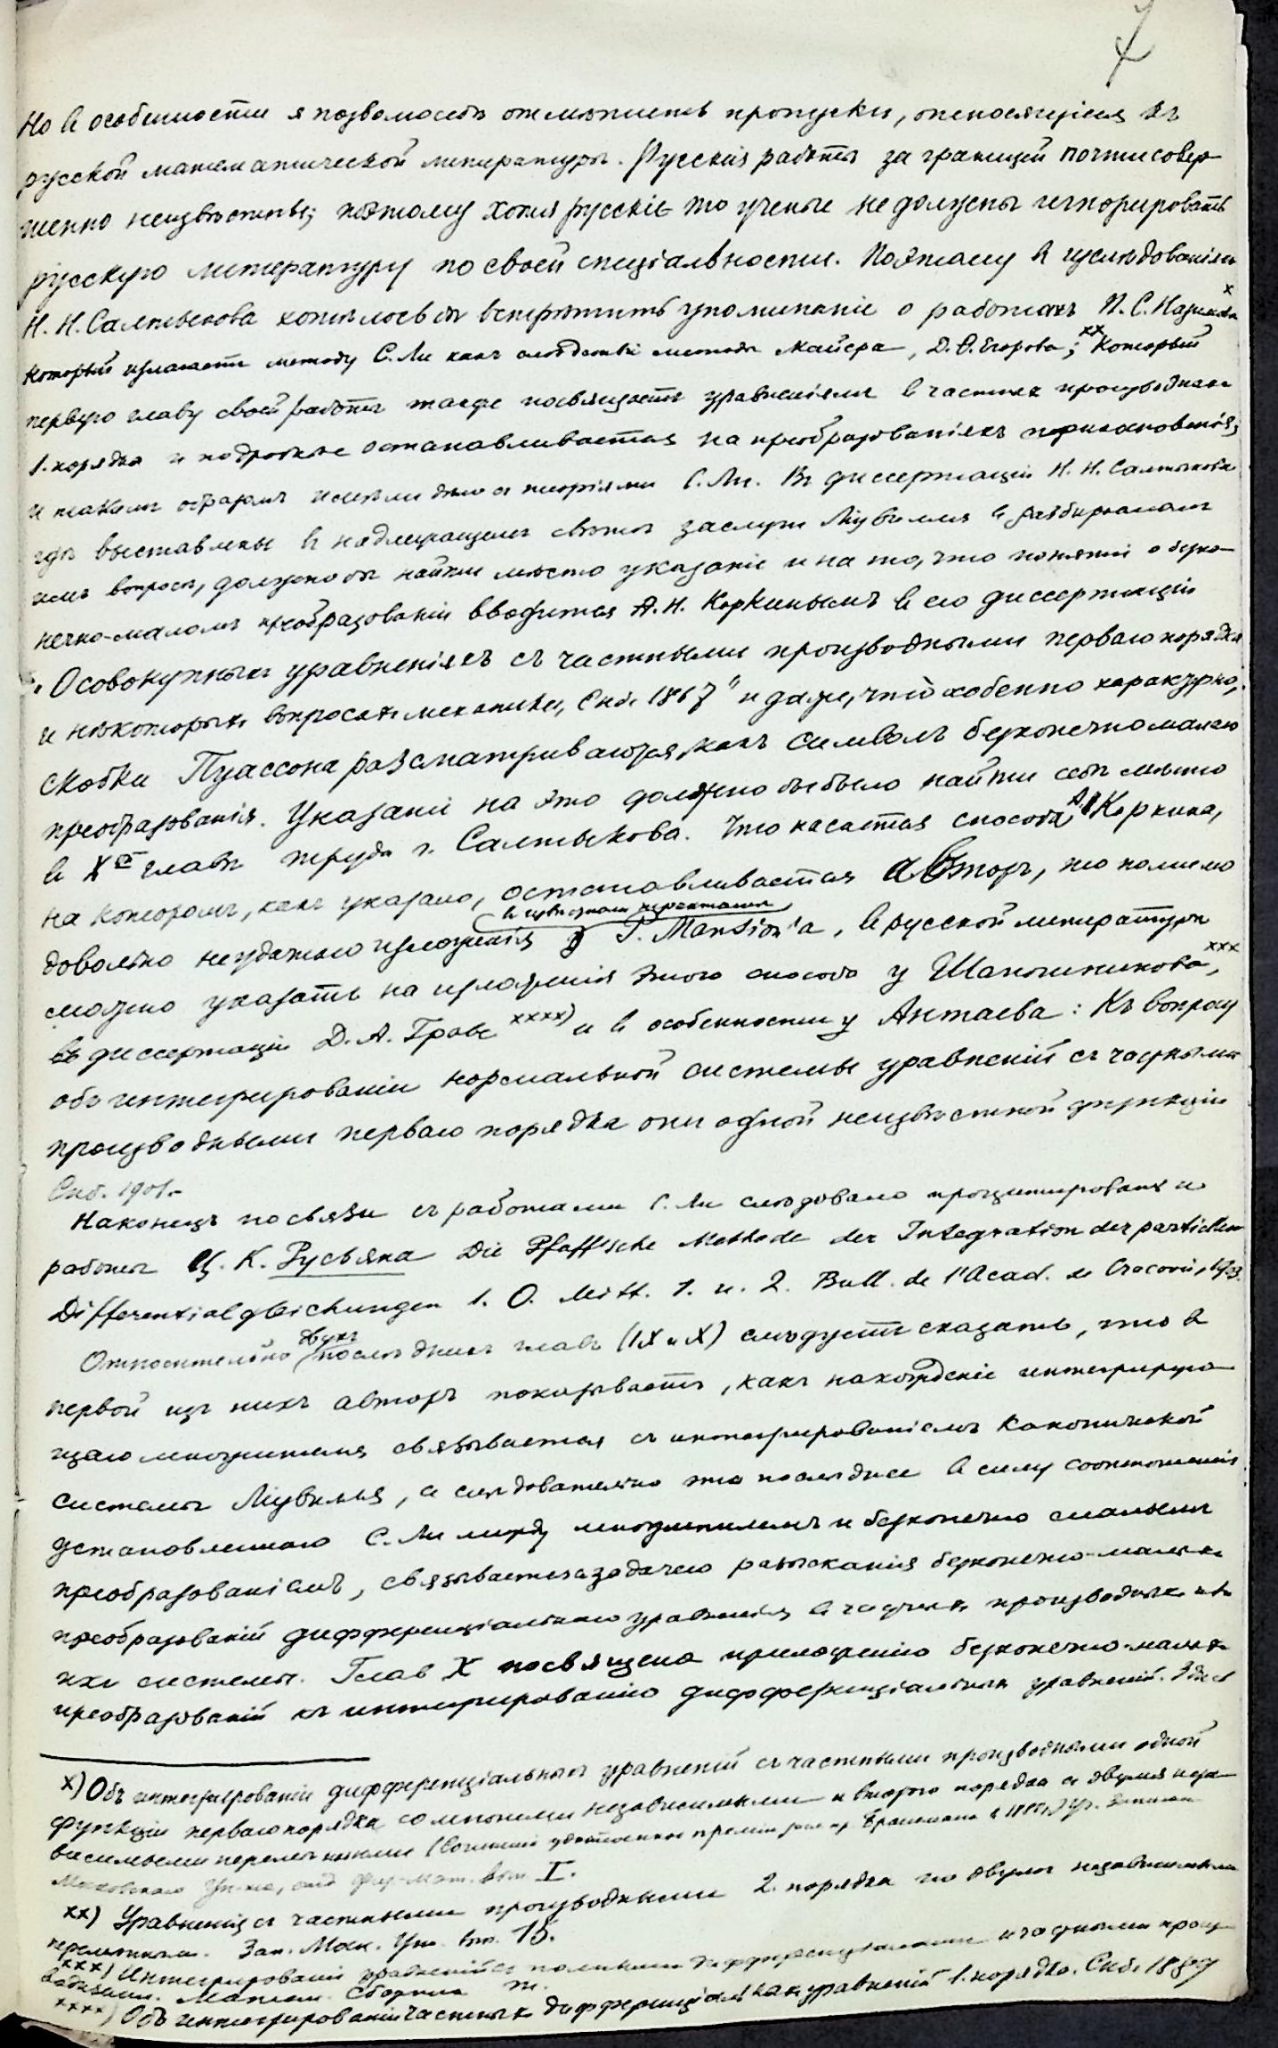 7
Но въ особенности я позволю себѣ отмѣтить пропуски, относящіеся къ
русской математической литературѣ. Русскія работы за границей почти совер-
шенно неизвѣстны; поэтому хотя русскіе то ученые не должны игнорировать
русскую литературу по своей спеціальности. Поэтому въ изслѣдованіяхъ
Н. Н. Салтыкова хотѣлось бы встрѣтить упоминаніе о работахъ П. С. Назимова x
который излагаетъ методу С. Ли какъ слѣдствіе метода Майера, Д. Ѳ. Егорова; xx который
первую главу своей работы тоже посвящаетъ уравненіямъ въ частныхъ производныхъ
1. порядка и подробнѣе останавливается на преобразованіяхъ прикосновенія,
и такимъ образомъ имѣли дѣло съ теоріями С. Ли. Въ диссертаціи Н. Н. Салтыкова
гдѣ выставлены въ надлежащемъ свѣтѣ заслуги Ліувилля въ разбираемомъ
имъ вопросѣ, должно бы найти мѣсто указаніе и на то, что понятіе о безко-
нечно-маломъ преобразованіи вводится А. Н. Коркинымъ въ его диссертаціи
„О совокупныхъ уравненіяхъ съ частными производными перваго порядка
и нѣкоторыхъ вопросахъ механики, Спб. 1867" и даже, что особенно характерно,
скобки Пуассона разсматриваются, какъ символъ безконечно малаго
преобразованія. Указаніе на это должно бы было найти себѣ мѣсто
въ X ой главѣ труда г. Салтыкова. Что касается способа А. Коркина,
на которомъ, какъ указано, останавливается авторъ, то помимо
довольно неудачнаго изложенія въ извѣстномъ трактатѣ P. Mansion'a, въ русской литературѣ
можно указать на изложенія этого способа у Шапошникова, xxx
въ диссертаціи Д. А. Граве xxxx) и въ особенности у Антаева: Къ вопросу
объ интегрированіи нормальной системы уравненій съ частными
производными перваго порядка при одной неизвѣстной функціи
Спб. 1901.
Наконецъ по связи съ работами С. Ли слѣдовало процитировать и
работы Ц. К. Русьяна Die Pfaff'sche Methode der Integration der partiellen
Differentialgleichungen 1. O. Mitt. 1. u. 2. Bull. de l'Acad. de Cracovie, 1903.
Относительно двухъ послѣднихъ главъ (IX и X) слѣдуетъ сказать, что въ
первой изъ нихъ авторъ показываетъ, какъ нахожденіе интегрирую-
щаго множителя связывается съ интегрированіемъ канонической
системы Ліувилля, а слѣдовательно эта послѣднее въ силу соотношенія
установленнаго С. Ли между множителемъ и безконечно малымъ
преобразованіемъ, связывается задачею разысканія безконечно-малыхъ
преобразованій дифференціальнаго уравненія въ частныхъ производныхъ или
ихъ системы. Глав X посвящена приложенію безконечно-малыхъ
преобразованій къ интегрированію дифференціальныхъ уравненій. Здѣсь
x) Объ интегрированіи дифференціальныхъ уравненій съ частными производными одной
функціи перваго порядка со многими независимыми и второго порядка съ двумя неза-
висимыми перемѣнными (Сочиненіе удостоенное преміи Брашмана въ Уч. Записки
Московскаго Ун-та, отд. физ-мат. вып. I.
xx) Уравненія съ частными производными 2. порядка по двумъ независимымъ
перемѣннымъ. Зап. Моск. Ун. вып. 15.
xxx) Интегрированіе уравненій съ полными дифференціалами и частными произ-
водными. Матем. Сборникъ т.
xxxx) Объ интегрированіи частныхъ дифференціальныхъ уравненій 1. порядка. Спб. 1889